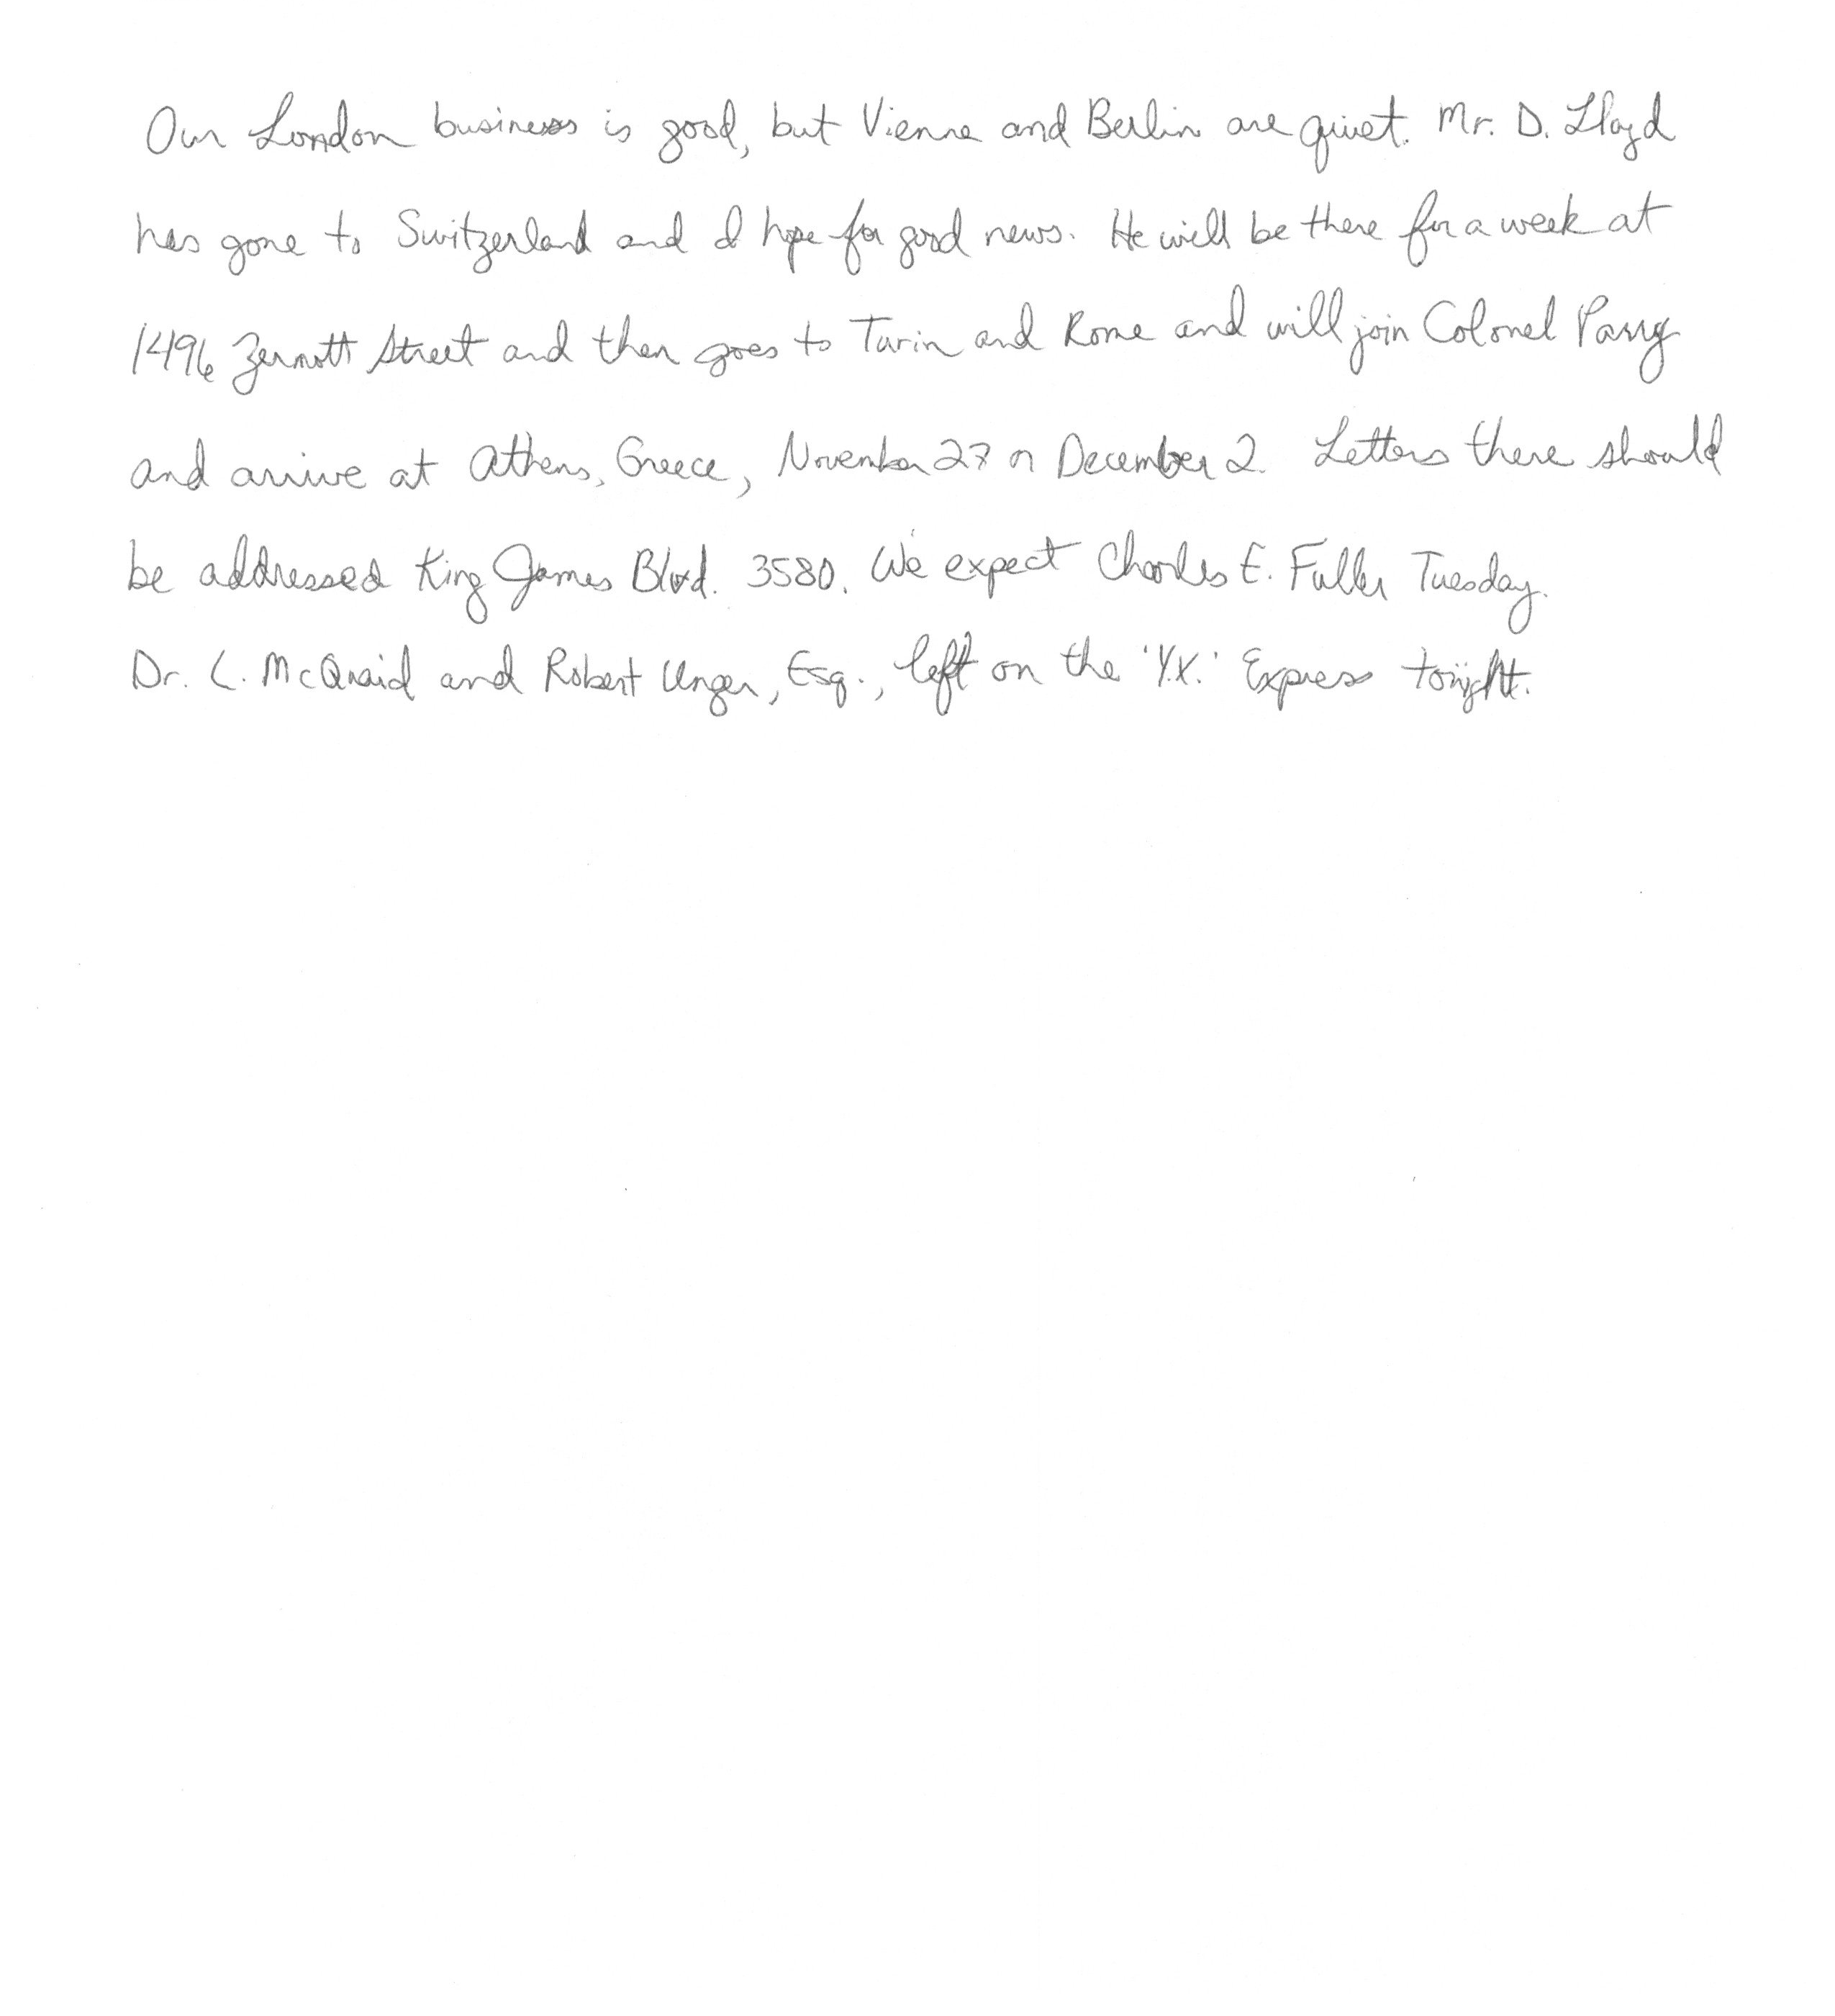 Our London business is good, but Vienna and Berlin are quiet. Mr. D. Lloyd
has gone to Switzerland and I hope for good news. He will be there for a week at
1496 Zermott Street and then goes to Turin and Rome and will join Colonel Parry
and arrive at Athens, Greece, November 27 or December 2. Letters there should
be addressed King James Blvd. 3580. We expect Charles E. Fuller Tuesday.
Dr. L. McQuaid and Robert Unger, Esq., left on the 'Y.X.' Express tonight.